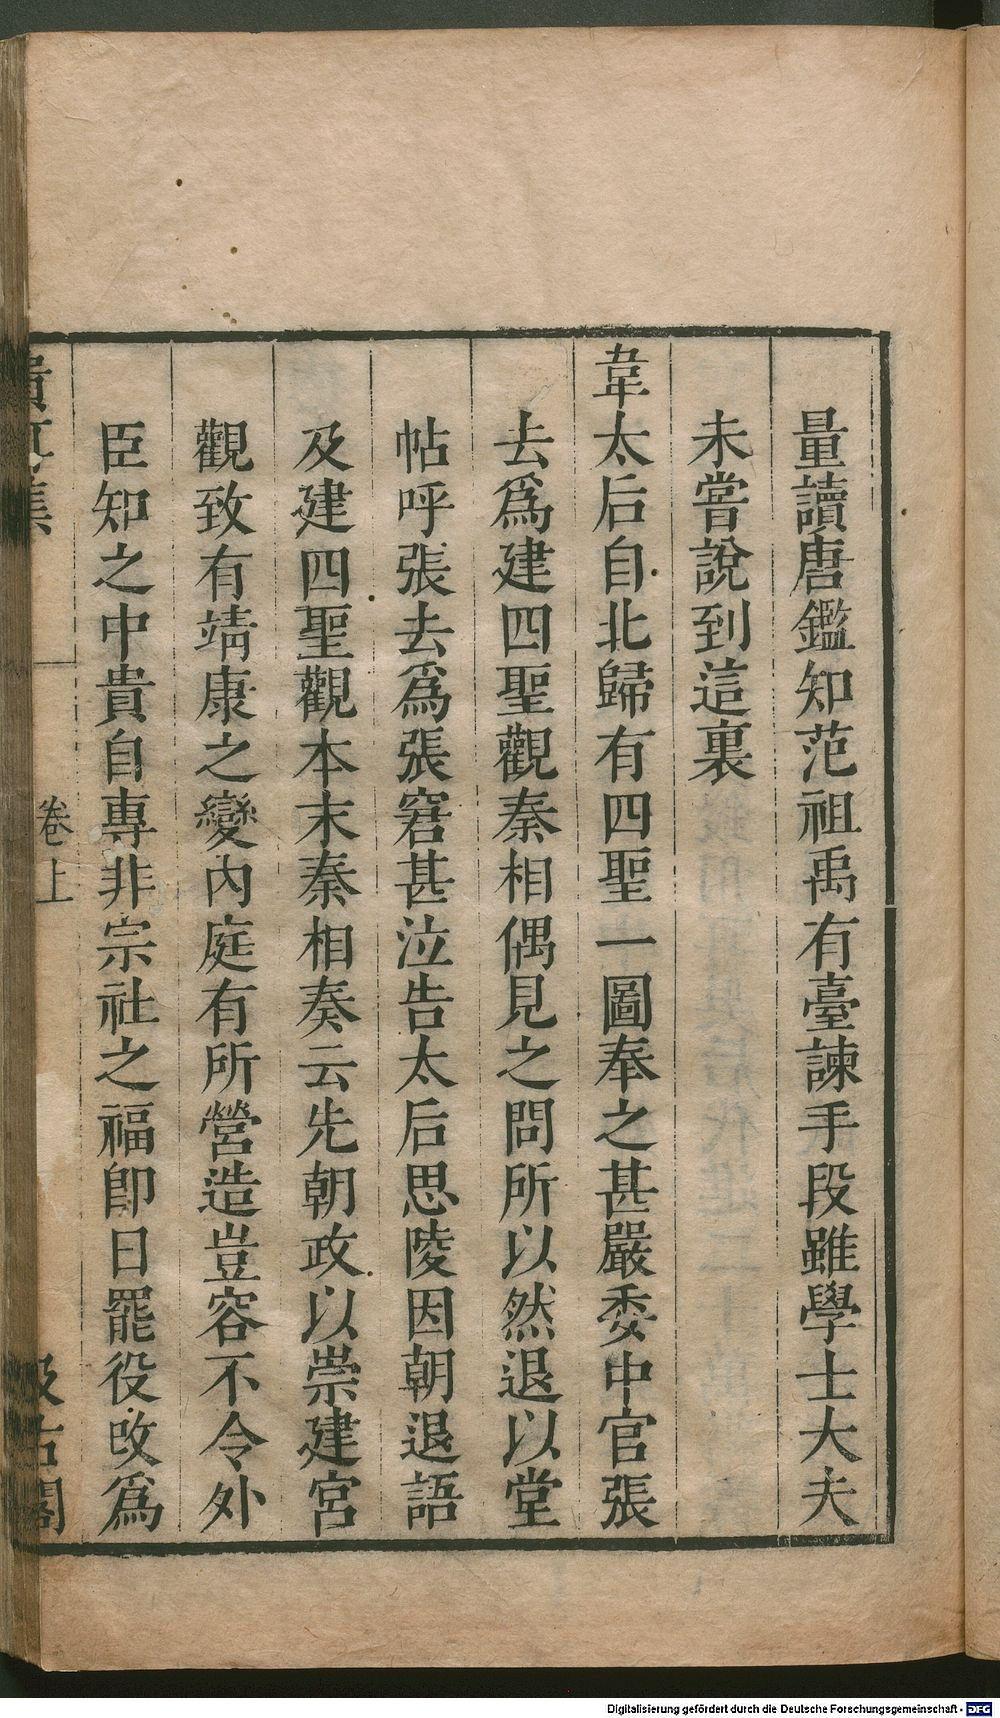 量讀唐鑑知范祖禹有臺諫手段雖學士大夫
未嘗說到這裏
韋太后自北歸有四聖一圖奉之甚嚴委中官張
去爲建四聖觀秦相偶見之問所以然退以堂
帖呼張去爲張窘甚泣告太后思陵因朝退語
及建四聖觀本末秦相奏云先朝政以崇建宮
觀致有靖康之變內庭有所營造豈容不令外
臣知之中貴自專非宗社之福卽日罷役改爲
卷上
汲古閣
Digitalisierung gefördert durch die Deutsche Forschungsgemeinschaft - DFG